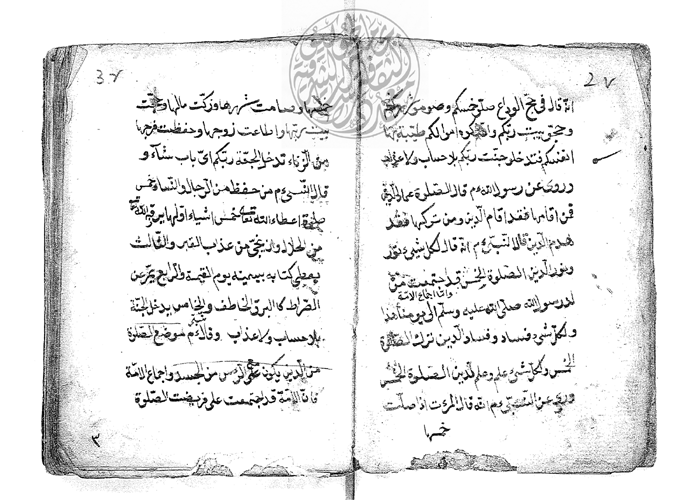 2 ٧
انه قال في حج الوداع صلوا خمسكم وصوموا شهركم
وحجوا بيت ربكم وادوا زكوة اموالكم طيبة بها
انفسكم تدخلوا جنة ربكم بلا حساب ولا عذاب
وروى عن رسول الله عم قال الصلوة عماد الدين
فمن اقامها فقد اقام الدين ومن تركها فقد
هدم الدين قال النبي عم انه قال لكل شيء نور
ونور الدين الصلوة الخمس قد اجتمعت من
واما اجماع الامة
لدن رسول الله صلى الله عليه وسلم الى يومنا هذا
ولكل شيء فساد وفساد الدين ترك الصلوة
الخمس ولكل شيء علم وعلم الدين الصلوة الخمس
وروى عن النبي عم انه قال المرءة اذا صلت
خمسها
3 ٧
خمسها وصامت شهرها وزكت مالها وحجت
بيت ربها واطاعت زوجها وحفظت فرجها
من الزناء تدخل الجنة ربكم اى باب شاء و
قال النبي عم من حفظ من الرجال والنساء خمس
صلوة اعطاء الله تعالى خمس اشياء اولها يرزقه الله
من الحلال والثاني ينجى من عذاب القبر والثالث
يعطى كتابه بيمينه يوم القيمة والرابع يمر عن
الصراط كالبرق الخاطف والخامس يدخل الجنة
بلا حساب ولا عذاب وقال عم موضع الصلوة
من الدين كموضع الرأس من الجسد واجماع الامة
فان الامة قد اجتمعت على فريضت الصلوة
٣